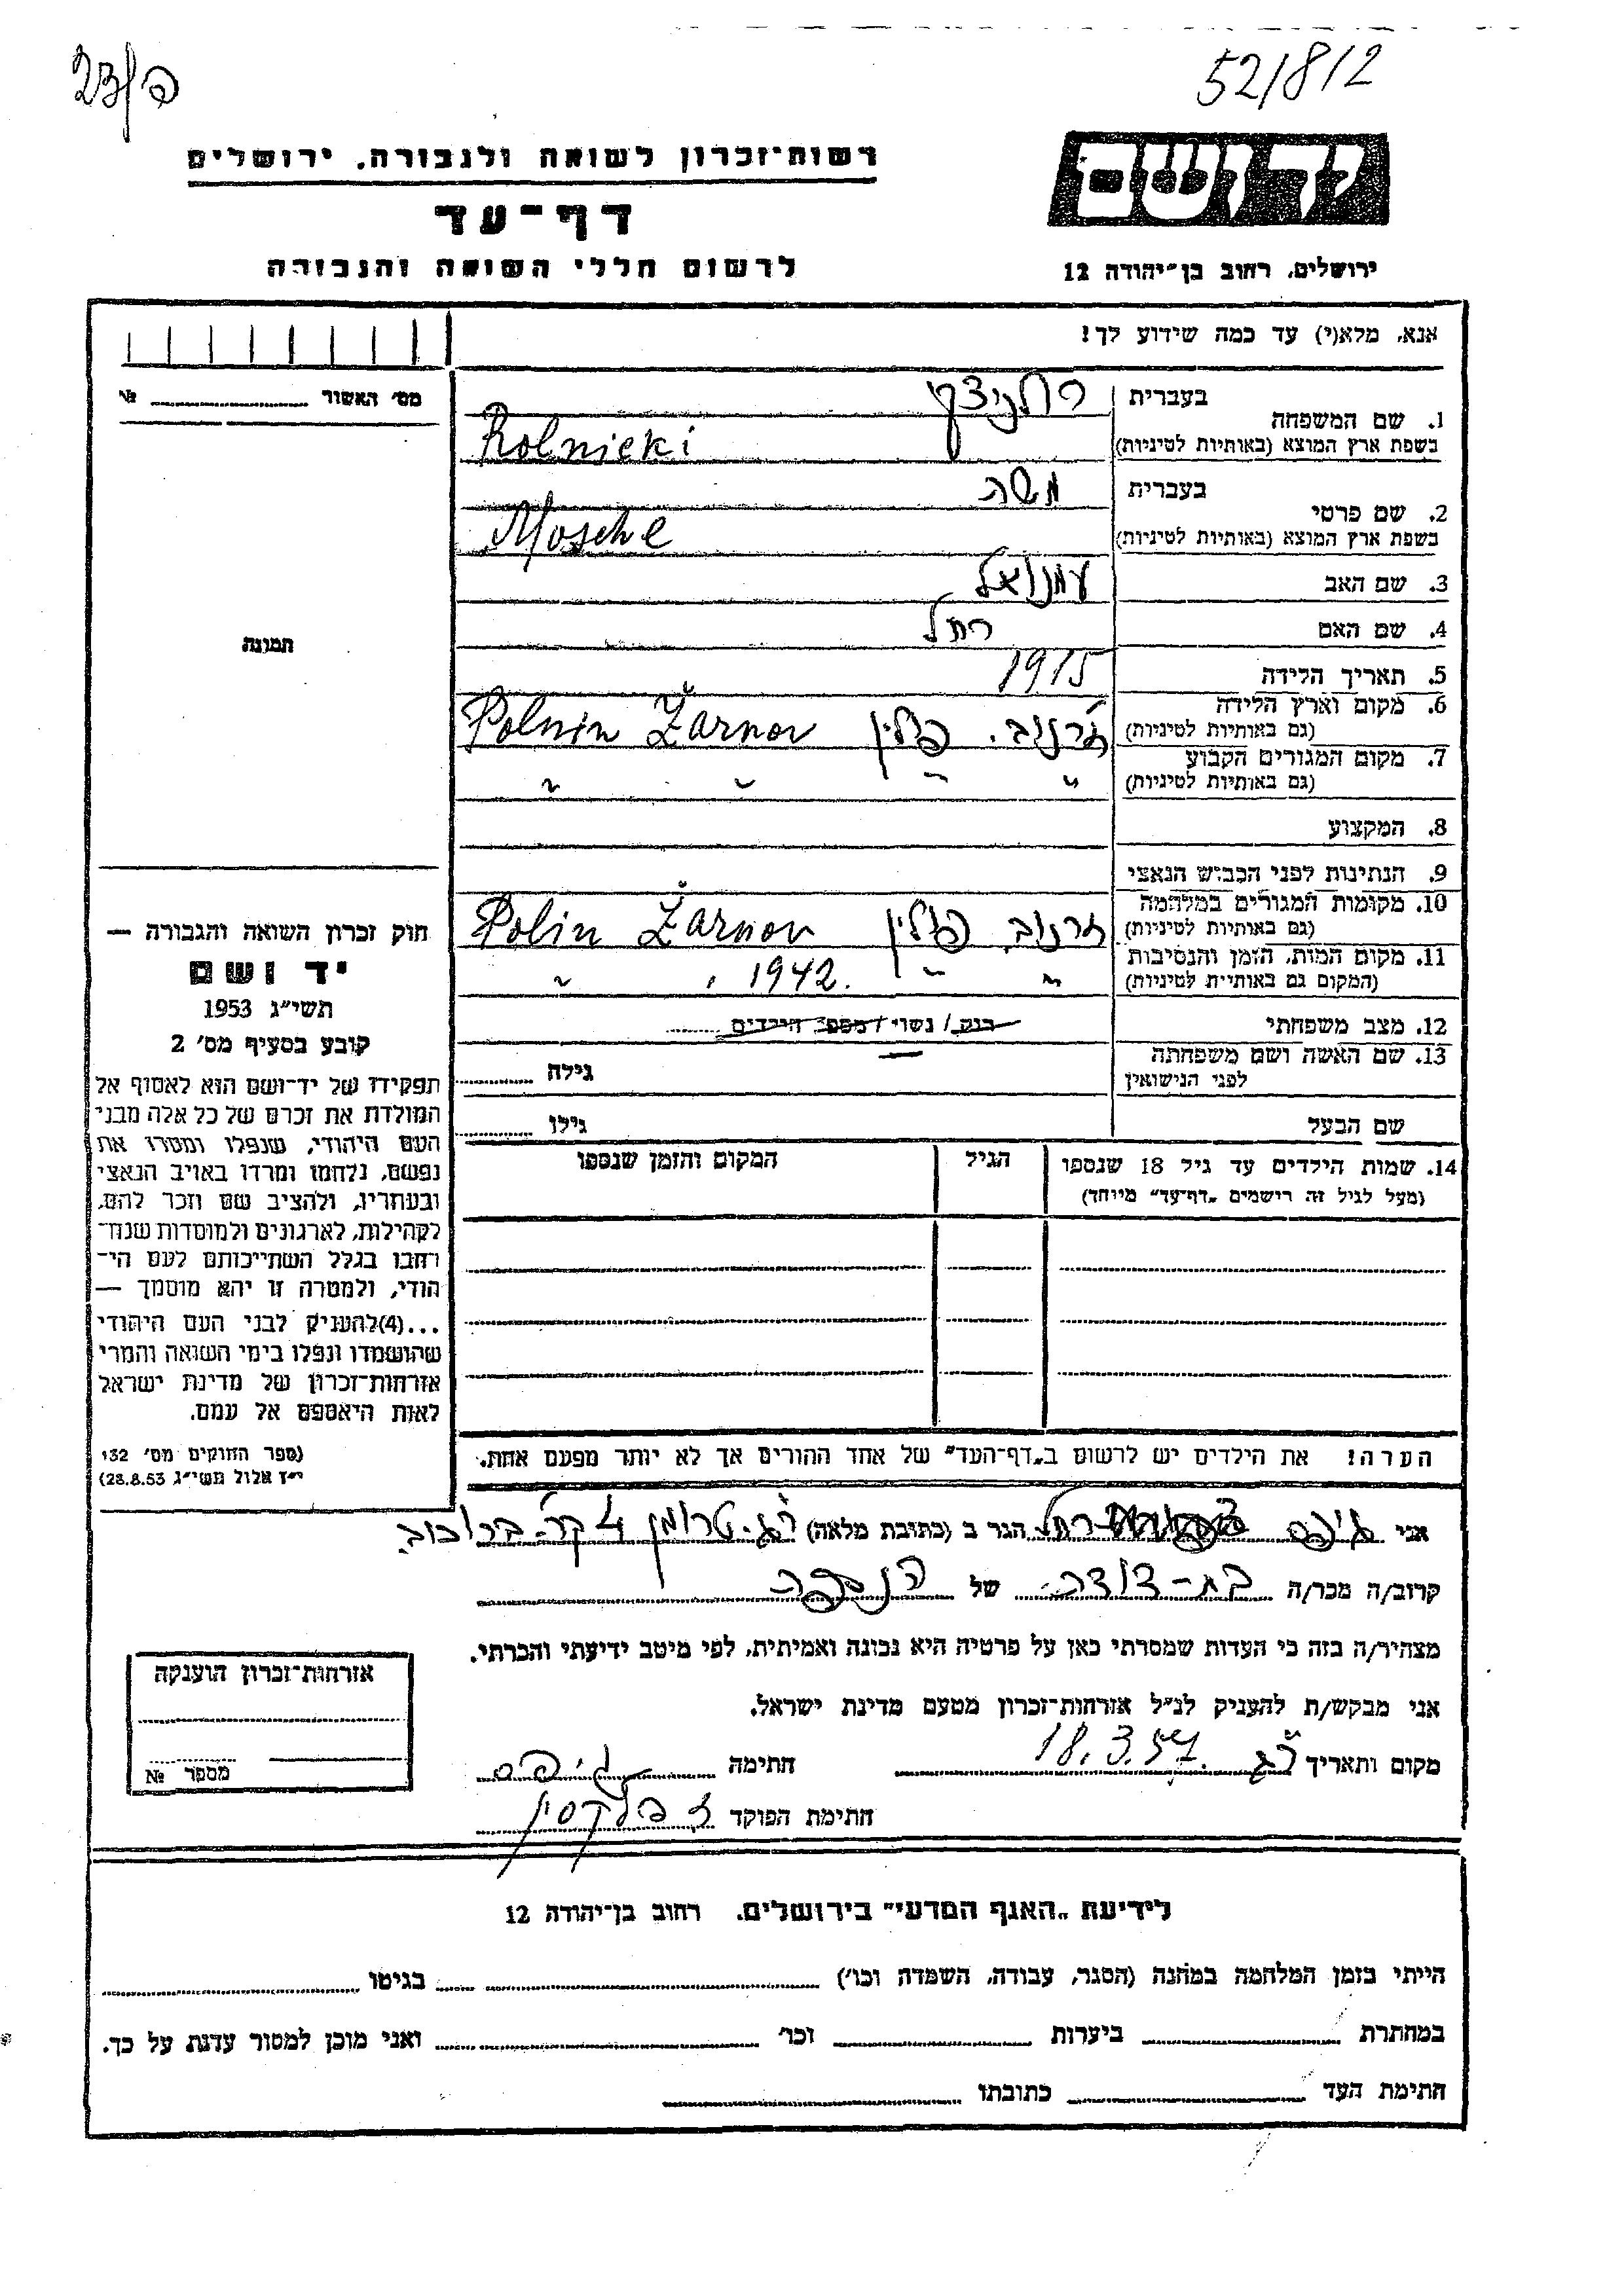 23/ק
52/8/2
יד ושם
רשות־זכרון לשואה ולגבורה, ירושלים
דף־עד
לרשום חללי השואה והגבורה
ירושלים, רחוב בן־יהודה 12
אנא, מלא(י) עד כמה שידוע לך!
מס׳ האשור № 
1. שם המשפחה
בעברית רולניצקי
בשפת ארץ המוצא (באותיות לטיניות) Rolnicki
2. שם פרטי
בעברית משה
בשפת ארץ המוצא (באותיות לטיניות) Mosche
3. שם האב עמנואל
4. שם האם רחל
תמונה
5. תאריך הלידה 1915
6. מקום וארץ הלידה (גם באותיות לטיניות) ז׳רנוב. פולין Żarnov
7. מקום המגורים הקבוע (גם באותיות לטיניות) " " " "
8. המקצוע
9. הנתינות לפני הכבוש הנאצי
10. מקומות המגורים במלחמה (גם באותיות לטיניות) זרנוב פולין Polin Żarnov
11. מקום המות, הזמן והנסיבות (המקום גם באותיות לטיניות) " " 1942. "
12. מצב משפחתי רווק / נשוי / מספר הילדים
13. שם האשה ושם משפחתה לפני הנישואין — גילה
שם הבעל גילו
14. שמות הילדים עד גיל 18 שנספו (מעל לגיל זה רישמים „דף־עד” מיוחד) הגיל המקום והזמן שנספו
חוק זכרון השואה והגבורה —
יד ושם
תשי״ג 1953
קובע בסעיף מס׳ 2
תפקידו של יד־ושם הוא לאסוף אל
המולדת את זכרם של כל אלה מבני
העם היהודי, שנפלו ומסרו את
נפשם, נלחמו ומרדו באויב הנאצי
ובעוזריו, ולהציב שם וזכר להם,
לקהילות, לארגונים ולמוסדות שנח־
רחבו בגלל השתייכותם לעם הי־
הודי, ולמטרה זו יהא מוסמך —
...(4)להעניק לבני העם היהודי
שהושמדו ונפלו בימי השואה והמרי
אזרחות־זכרון של מדינת ישראל
לאות היאספם אל עמם.
(ספר החוקים מס׳ 132
י״ז אלול תשי״ג 28.8.53)
הערה! את הילדים יש לרשום ב„דף־העד” של אחד ההורים אך לא יותר מפעם אחת.
אני רחל הגר ב (כתובת מלאה) ר״ג. טרומן 4 קר. בורוכוב
קרוב/ה מכר/ה בת-דודה של הנספה
מצהיר/ה בזה כי העדות שמסרתי כאן על פרטיה היא נכונה ואמיתית, לפי מיטב ידיעתי והכרתי.
אני מבקש/ת להעניק לנ״ל אזרחות־זכרון מטעם מדינת ישראל.
מקום ותאריך ר״ג 18.3.57 חתימה
חתימת הפוקד
אזרחות־זכרון הוענקה
מספר №
לידיעת „האגף המדעי” בירושלים, רחוב בן־יהודה 12
הייתי בזמן המלחמה במחנה (הסגר, עבודה, השמדה וכו׳) בגיטו
במחתרת ביערות וכו׳ ואני מוכן למסור עדות על כך.
חתימת העד כתובתו